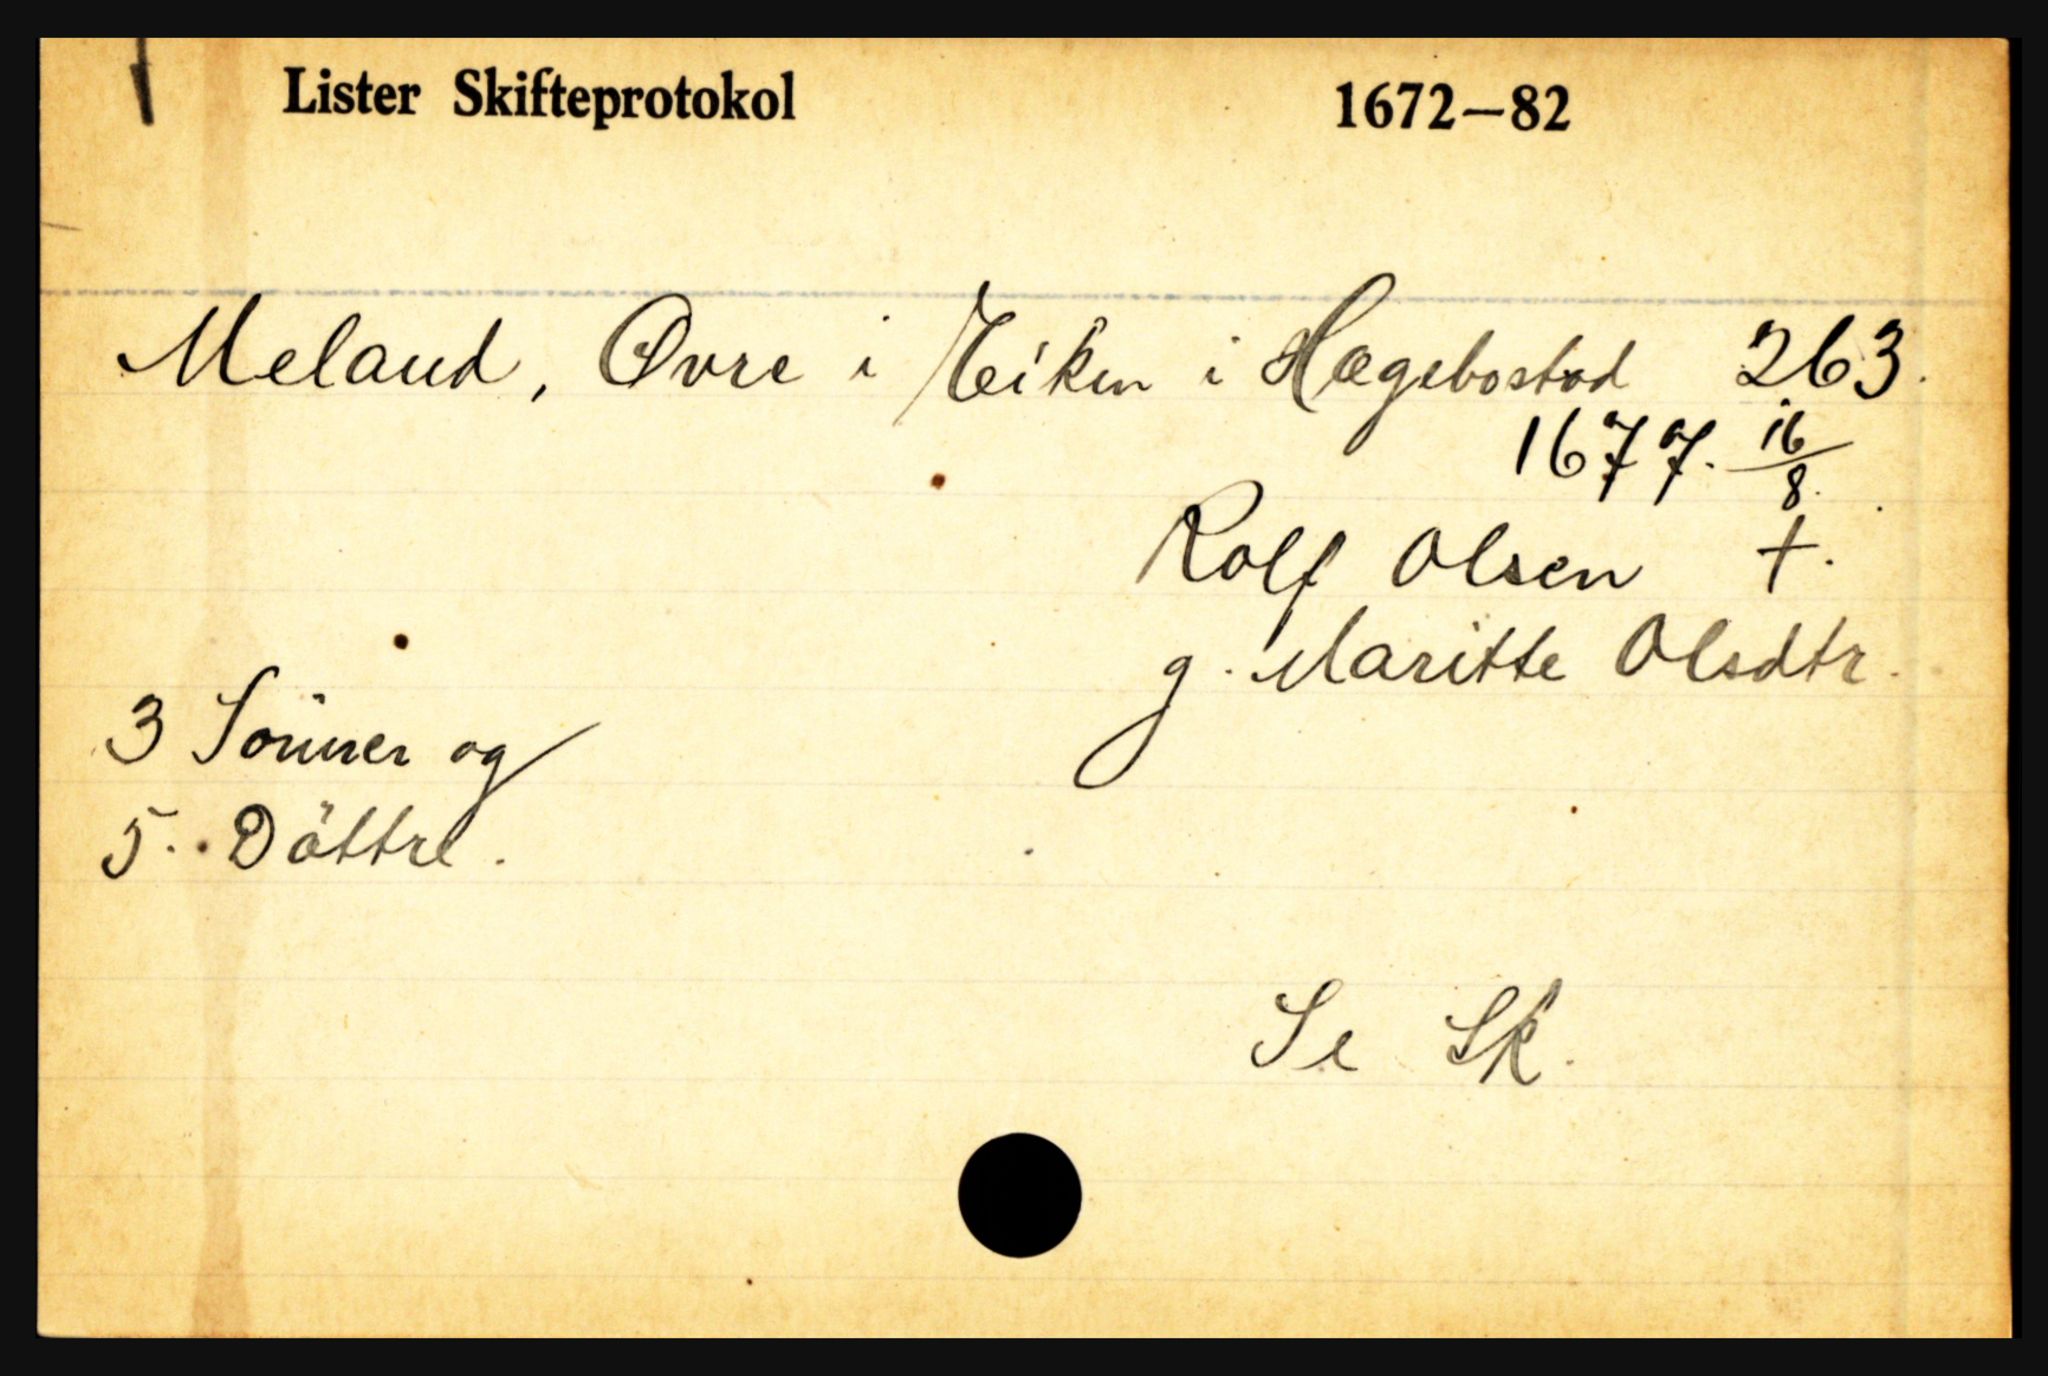 Lister Skifteprotokol 1672—82
Meland, Øvre i Eiken i Hægebostad 263.
1677. 16/8.
Rolf Olsen †.
g. Maritte Olsdtr.
3 Sönner og
5. Döttre.
Se Sk.